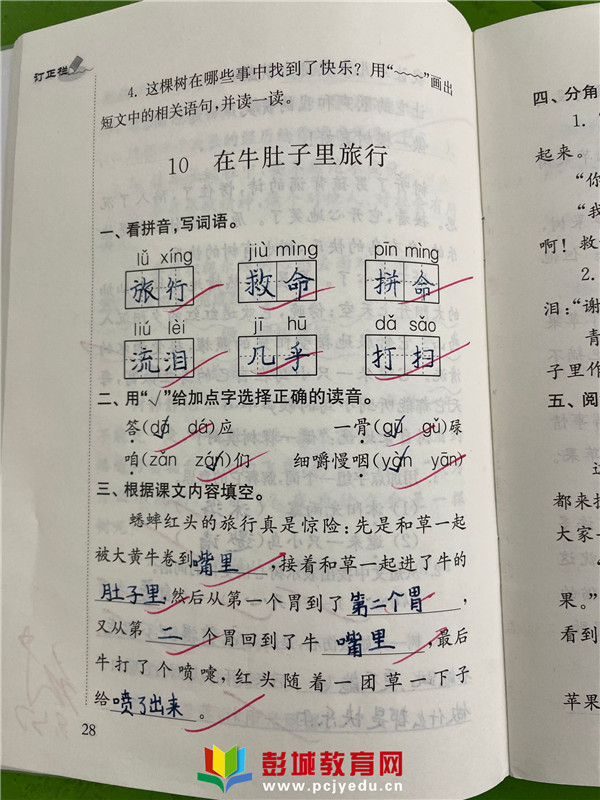 订正栏
4. 这棵树在哪些事中找到了快乐？用“﹏﹏”画出
短文中的相关语句，并读一读。
10 在牛肚子里旅行
一、看拼音，写词语。
lǚ xíng jiù mìng pīn mìng
旅行 救命 拼命
liú lèi jī hū dǎ sǎo
流泪 几乎 打扫
二、用“√”给加点字选择正确的读音。
答(dā dá)应 一骨(gū gú)碌
咱(zǎn zán)们 细嚼慢咽(yàn yān)
三、根据课文内容填空。
蟋蟀红头的旅行真是惊险：先是和草一起
被大黄牛卷到嘴里，接着和草一起进了牛的
肚子里，然后从第一个胃到了第二个胃，
又从第二个胃回到了牛嘴里，最后
牛打了个喷嚏，红头随着一团草一下子
给喷了出来。
28
四、分角
1.
起来。
“你
“我
啊！救
泪：“谢
青
子里作
五、阅
都来
大家
果。”
看到
苹果
彭城教育网
www.pcjyedu.cn